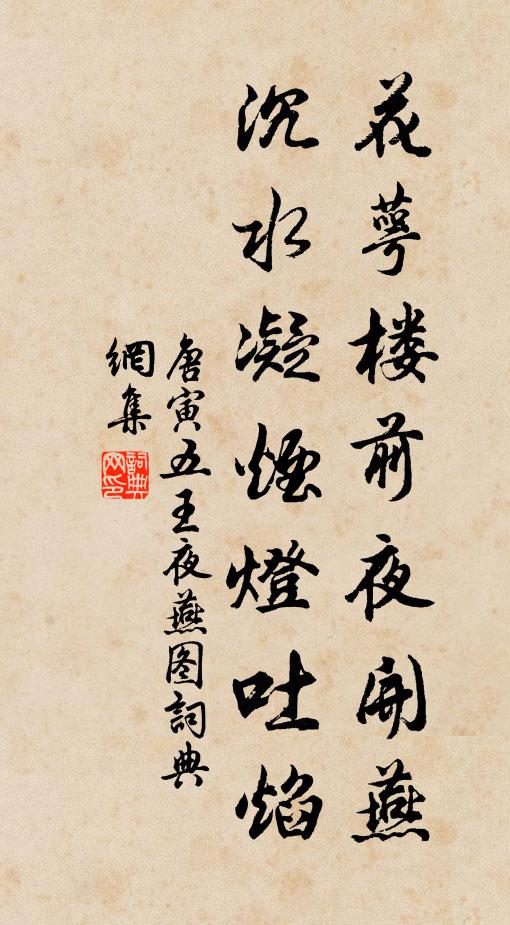 花萼楼前夜開燕
沉水凝煙燈吐焰
唐寅五王夜燕图詞典
網集
詞典网印